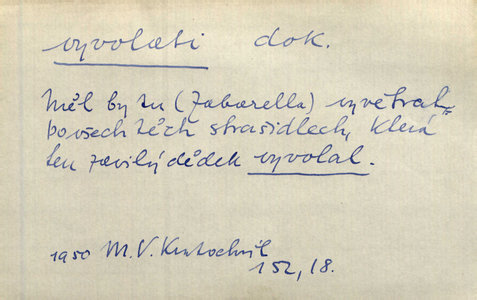 vyvolati dok.
Měl by tu (Zabarella) vyvětrat
po všech těch strašidlech, která
ten zavilý dědek vyvolal.
1950 M. V. Kratochvíl
152, 18.